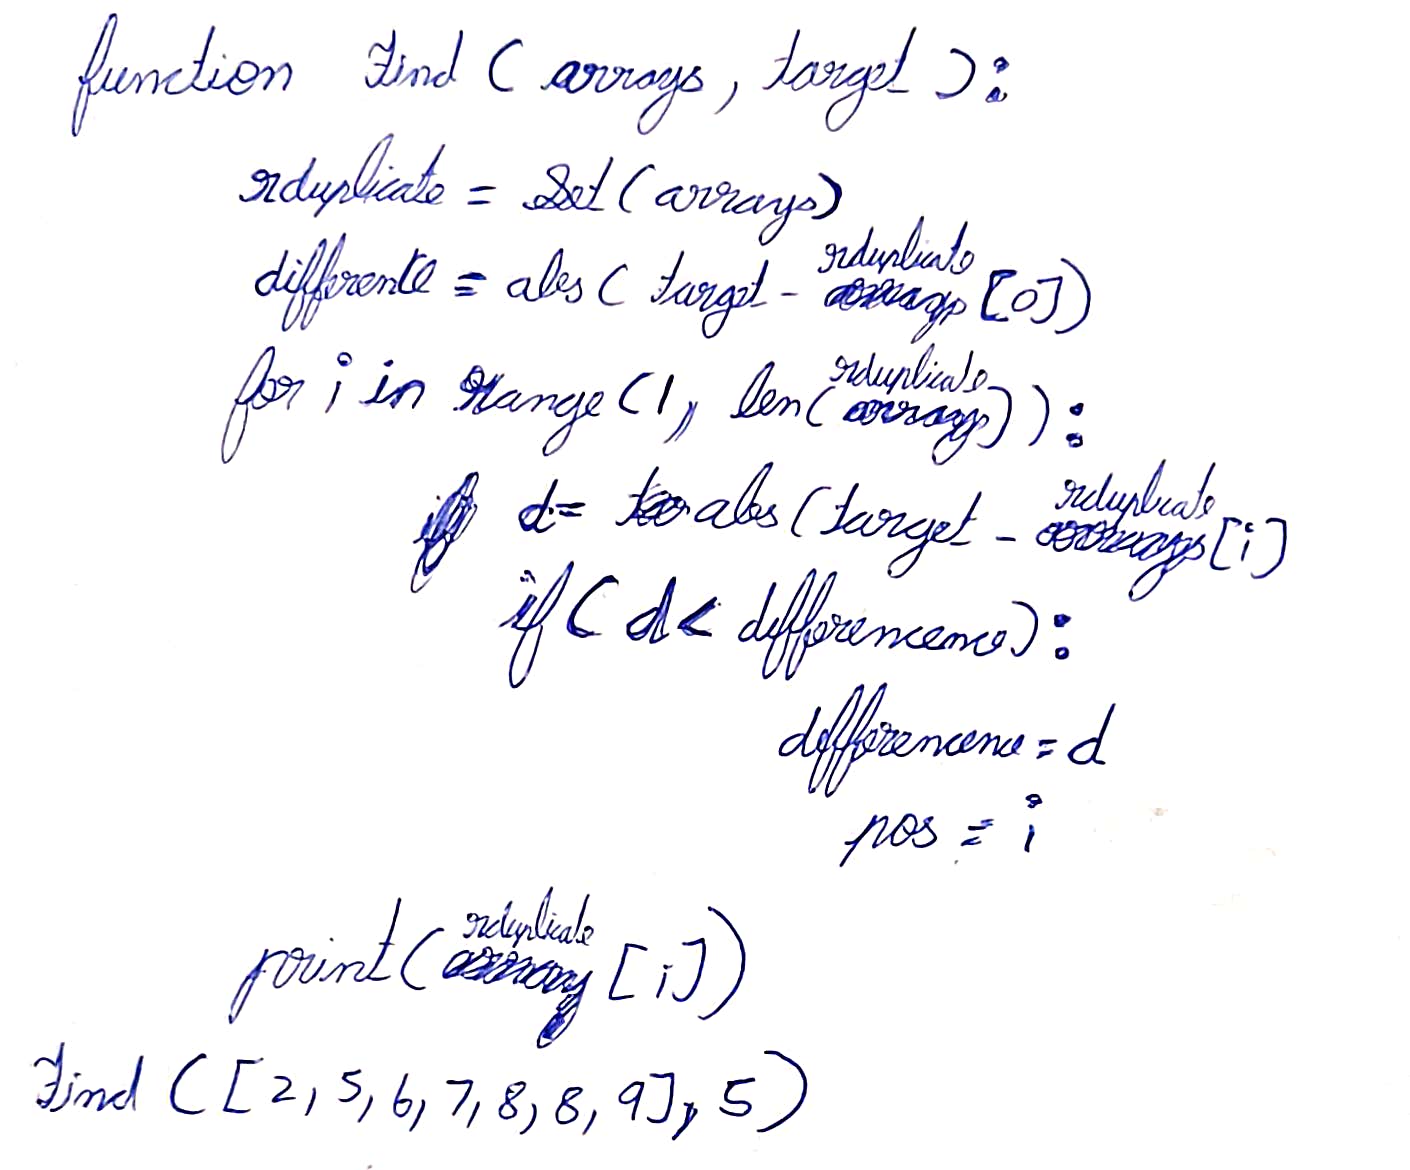 function Find ( arrays, target ):
rduplicate = Set ( arrays)
difference = abs ( target - rduplicate [0])
for i in range (1, len( rduplicate)):
d = abs ( target - rduplicate [i]
if ( d < differencence):
differencence = d
pos = i
print( rduplicate [i])
Find ( [2, 5, 6, 7, 8, 8, 9], 5)